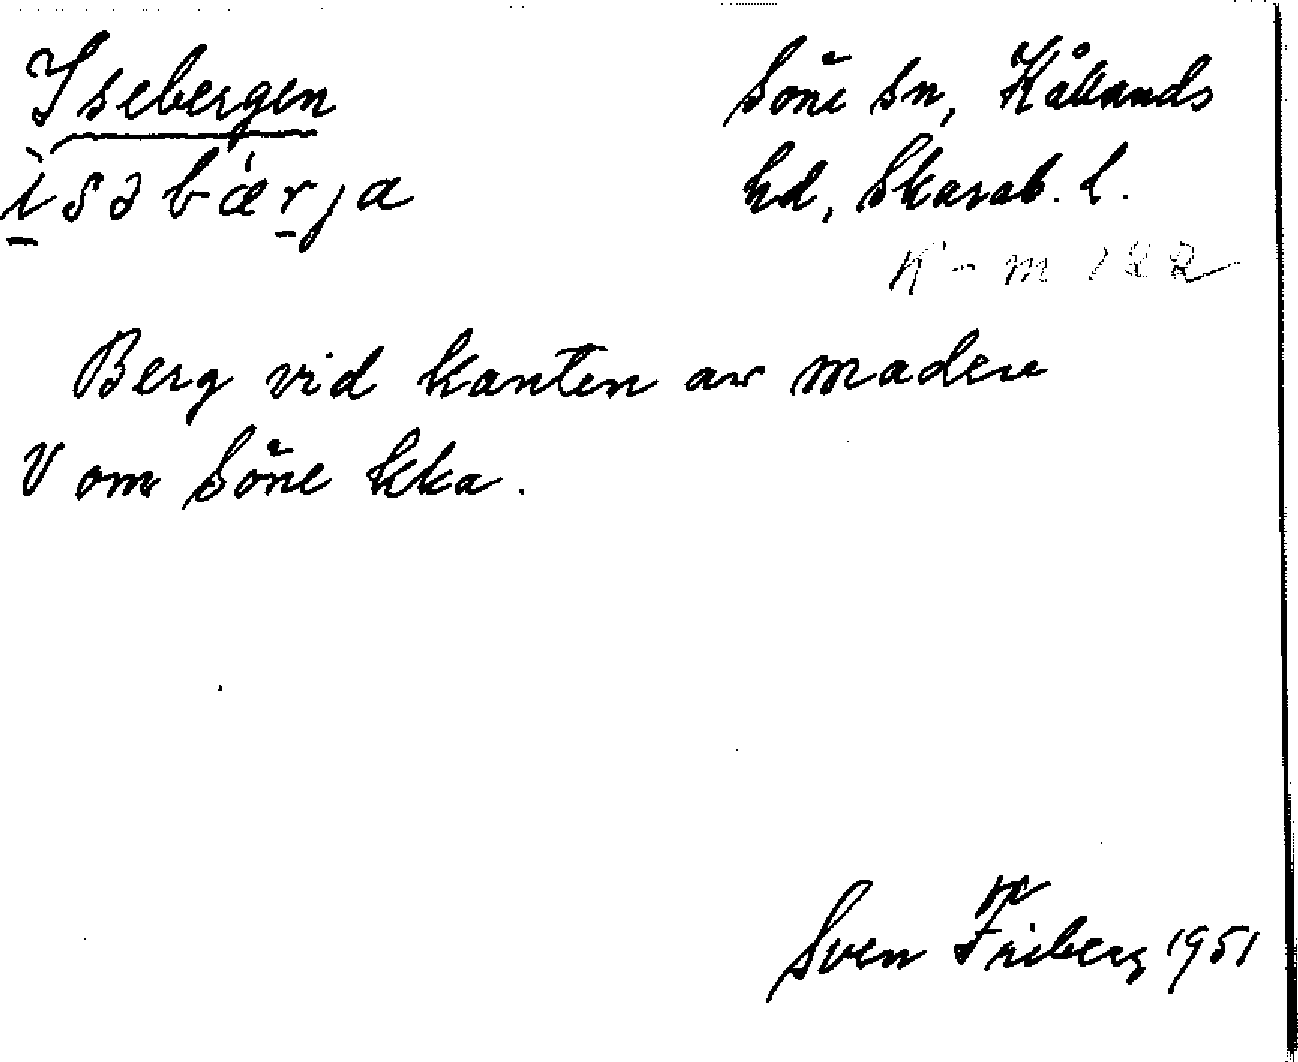 Isebergen
Söne sn, Kållands
ìsəbǽrja
hd, Skarab. l.
K-m 122
Berg vid kanten av maden
V om Söne kka.
Sven Friberg 1951